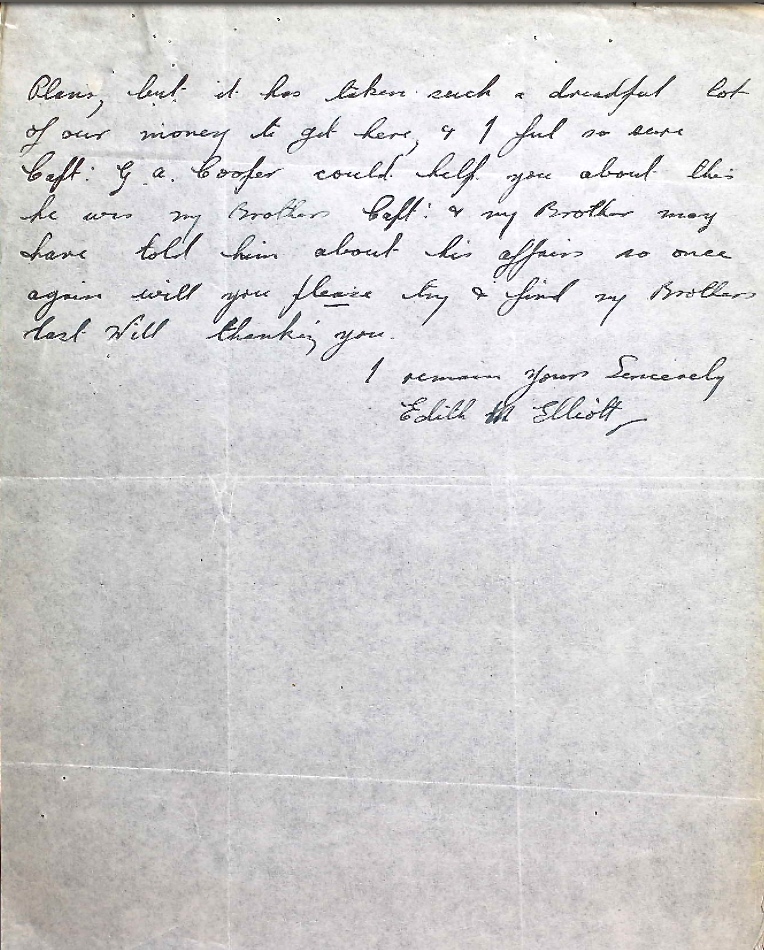 Plans, but it has taken such a dreadful lot
of our money to get here, & I feel so sure
Capt: G. A. Cooper could help you about this
he was my Brothers Capt: & my Brother may
have told him about his affairs so once
again will you please try & find my Brothers
last Will thanking you.
I remain Yours Sincerely
Edith M Elliott